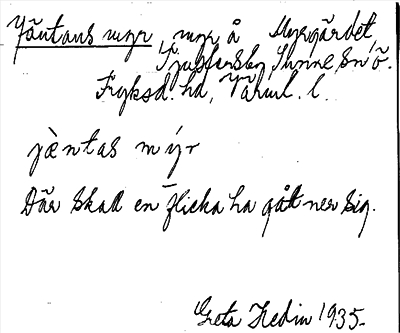 Jäntans myr, myr å Myrgärdet,
Ljusbersby, Sunne sn ö.
Fryksd. hd, Värml. l.
jèntas mýr
Där skall en flicka ha gått ner sig.
Greta Hedin 1935.